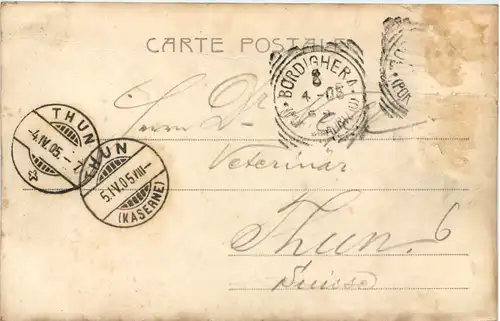 CARTE POSTALE
BORDIGHERA
4-05
THUN
-4.IV.05.-
THUN
5.IV.05/VIII-
(KASERNE)
Herrn Dr
Veterinär
Thun. 6
Suisse